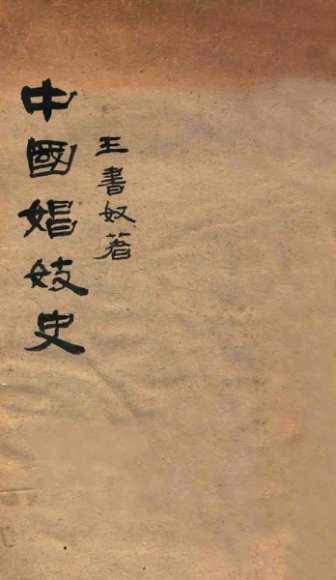 中國娼妓史
王書奴著